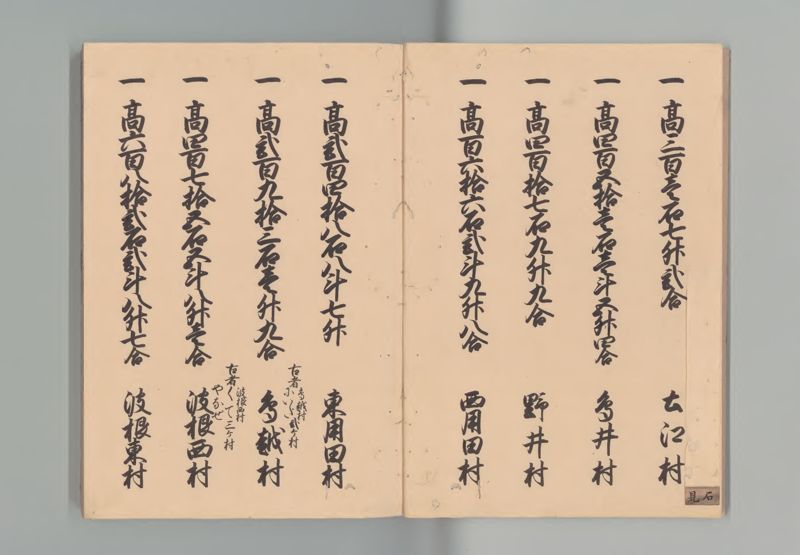 一 高三百壱石七升弐合 土江村
一 高四百五拾壱石壱斗五升四合 鳥井村
一 高四百拾七石九升九合 野井村
一 高百六拾六石弐斗九升八合 西用田村
一 高弐百四拾八石八斗七升 東用田村
一 高弐百九拾三石壱升九合 鳥越村
古者鳥越村
弐ヶ村
一 高四百七拾五石五斗八升壱合 波根西村
古者波根西村
くて三ヶ村
やなせ
一 高六百八拾弐石弐斗八升七合 波根東村
石見